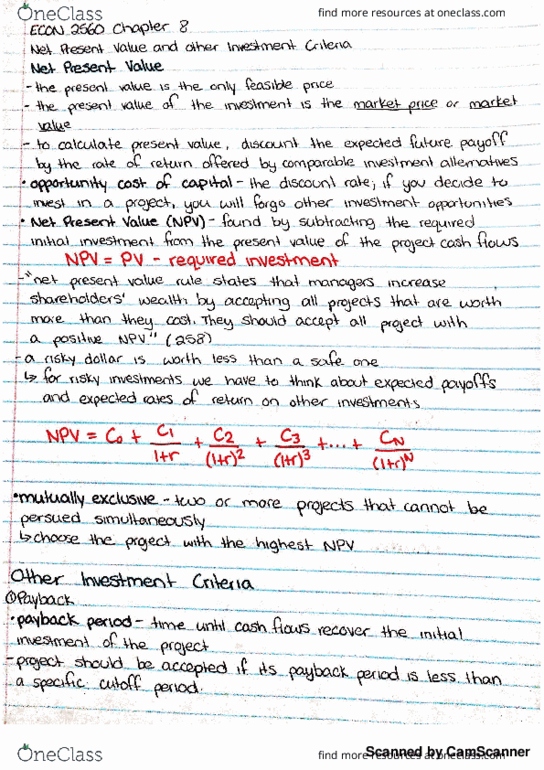 OneClass
find more resources at oneclass.com
ECON 2560 Chapter 8
Net Present Value and other Investment Criteria
Net Present Value
- the present value is the only feasible price
- the present value of the investment is the market price or market
value
- to calculate present value, discount the expected future payoff
by the rate of return offered by comparable investment alternatives
• opportunity cost of capital - the discount rate; if you decide to
invest in a project, you will forgo other investment opportunities
• Net Present Value (NPV) - found by subtracting the required
initial investment from the present value of the project cash flows
NPV = PV - required investment
- "net present value rule states that managers increase
shareholders' wealth by accepting all projects that are worth
more than they cost. They should accept all project with
a positive NPV" (258)
- a risky dollar is worth less than a safe one
↳ for risky investments we have to think about expected payoffs
and expected rates of return on other investments
NPV = C₀ + C₁/(1+r) + C₂/(1+r)² + C₃/(1+r)³ + ... + C_N/(1+r)^N
• mutually exclusive - two or more projects that cannot be
persued simultaneously
↳ choose the project with the highest NPV
Other Investment Criteria
① Payback
• payback period - time until cash flows recover the initial
investment of the project
- project should be accepted if its payback period is less than
a specific cutoff period.
OneClass
find more resources at oneclass.com
Scanned by CamScanner